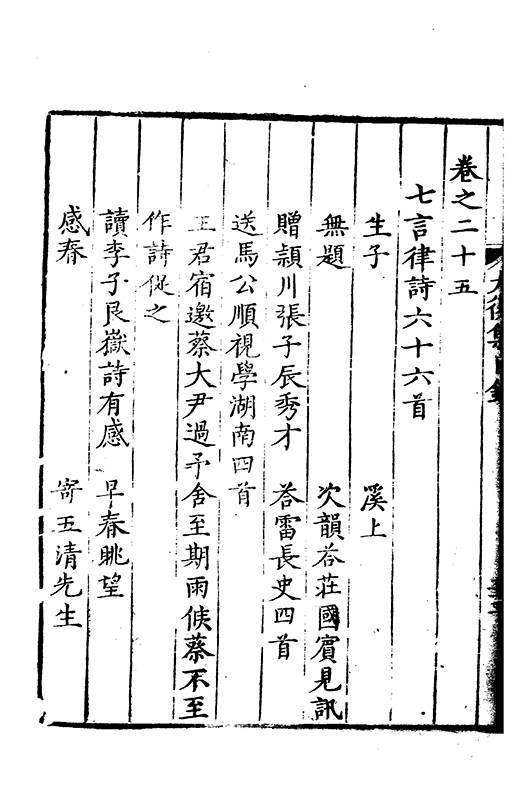 卷之二十五
七言律詩六十六首
生子　溪上
無題　次韻荅莊國賓見訊
贈潁川張子辰秀才　荅雷長史四首
送馬公順視學湖南四首
王君宿邀蔡大尹過予舍至期雨候蔡不至
作詩促之
讀李子艮嶽詩有感　早春眺望
感春　寄五清先生